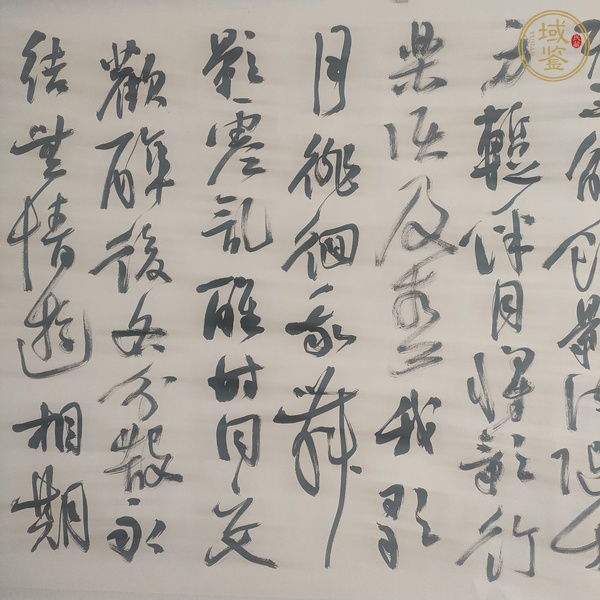 不解飲影徒隨我
身暫伴月將影行
樂須及春我歌
月徘徊我舞
影零亂醒時同交
歡醉後各分散永
結無情遊相期
域鑒